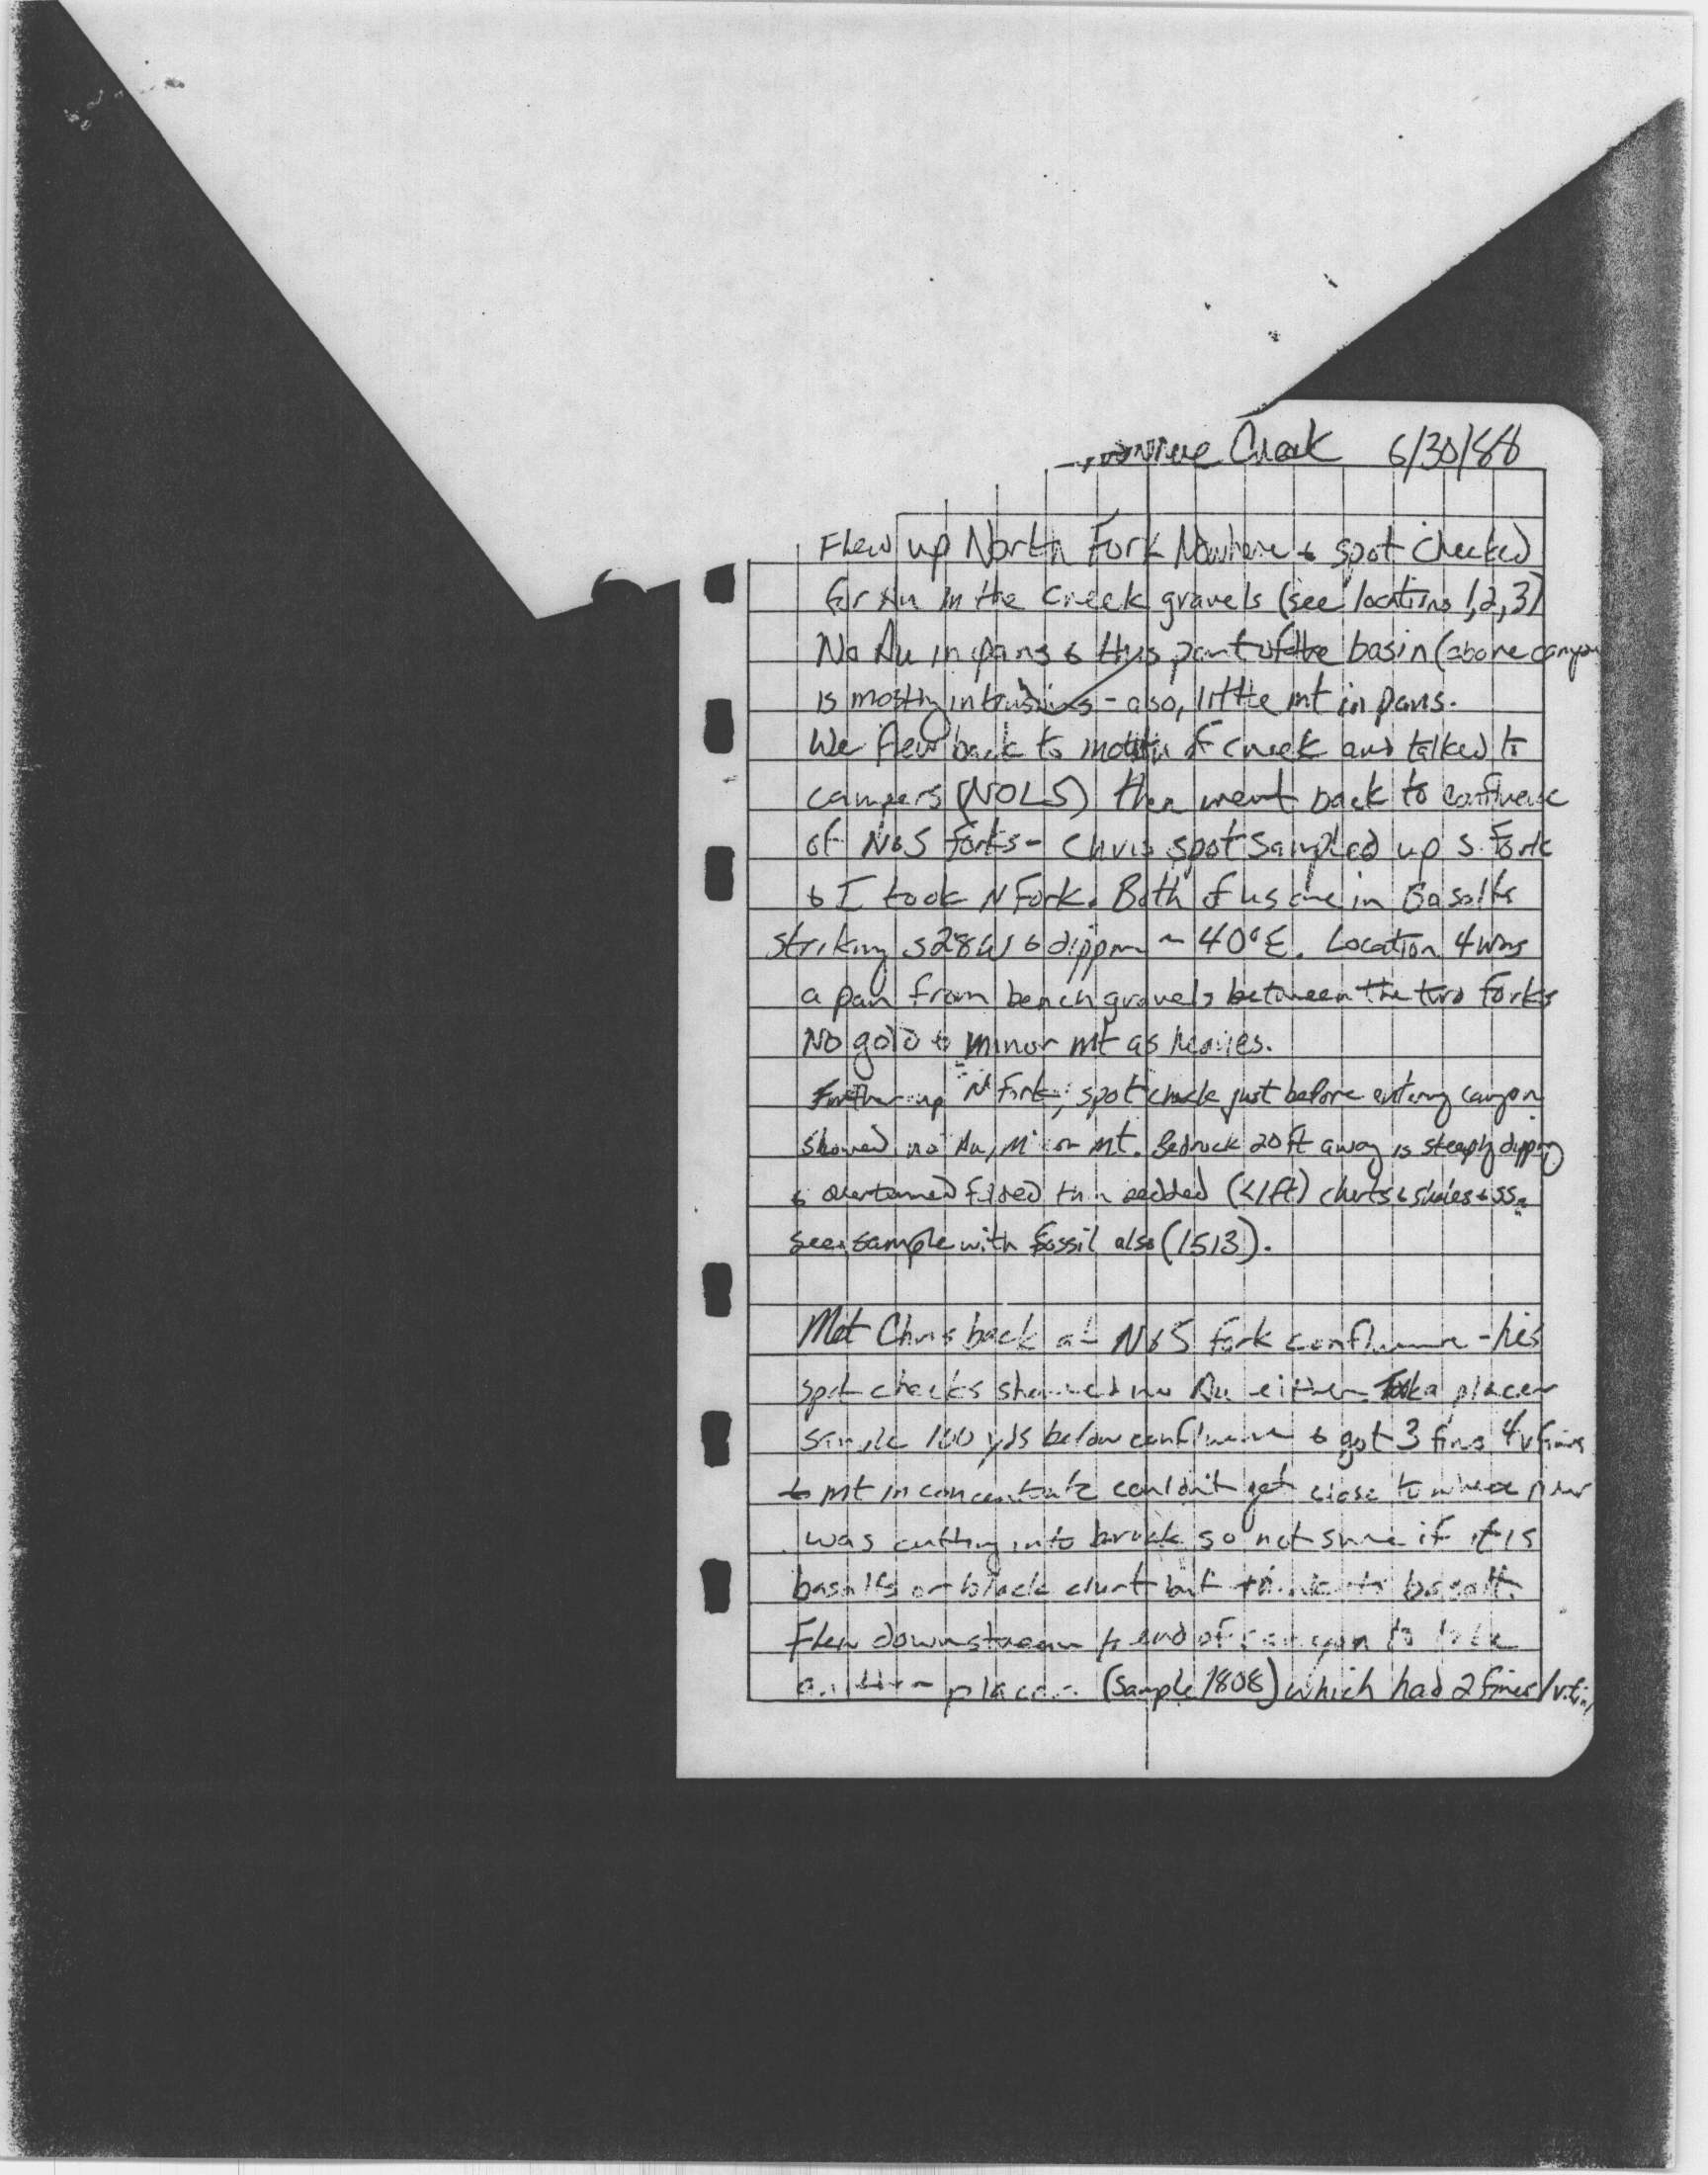 Creek 6/30/88
Flew up North Fork Nowhere & spot checked
for Au in the creek gravels (see locations 1,2,3)
No Au in pans & this part of the basin (above canyon
is mostly intrusives - also, little mt in pans.
We flew back to mouth of creek and talked to
campers (NOLS) then went back to confluence
of N&S Forks - Chris spot sampled up S. Fork
& I took N Fork. Both of us are in Basalts
striking S28W & dipping ~ 40°E. Location 4 was
a pan from bench gravels between the two forks
No gold & minor mt as heavies.
Further up N Fork, spot check just before entering canyon
showed no Au, minor mt. Bedrock 20 ft away is steeply dipping
& overturned folded thin bedded (<1ft) cherts & shales & ss.
see sample with fossil also (1513).
Met Chris back at N&S fork confluence - his
spot checks showed no Au either. Took a placer
sample 100 yds below confluence & got 3 fines 4 v fines
& mt in concentrate couldn't get close to where river
was cutting into brock so not sure if it is
basalts or black chert but think its basalt.
Flew downstream to end of canyon to take
another placer (Sample 1808) which had 2 fines 1 v.fin